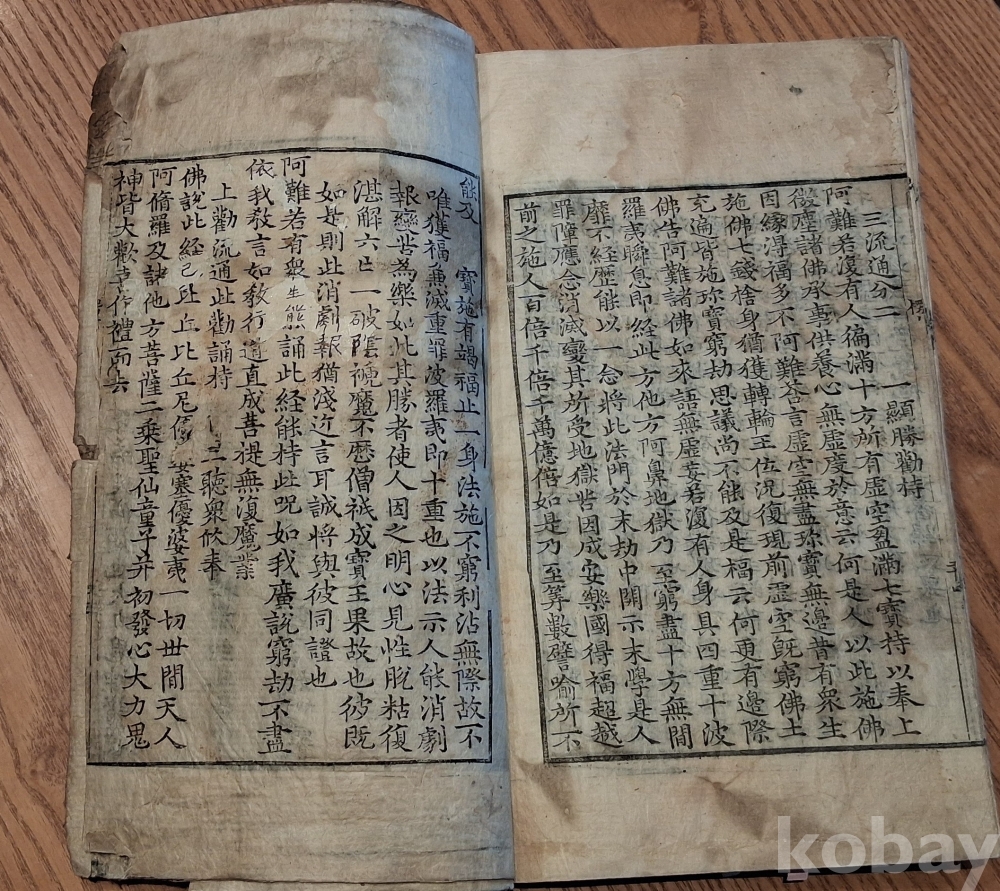 三流通分二 一顯勝勸持
阿難若復有人徧滿十方所有虛空盈滿七寶持以奉上
微塵諸佛承事供養心無虛度於意云何是人以此施佛
因緣淂福多不阿難荅言虛空無盡珎寶無邊昔有衆生
施佛七錢捨身猶獲轉輪王位况復現前虛空旣窮佛土
充遍皆施珎寶窮劫思議尚不能及是福云何更有邊際
佛告阿難諸佛如來語無虛妄若復有人身具四重十波
羅夷瞬息即經此方他方阿鼻地獄乃至窮盡十方無間
靡不經歷能以一念將此法門於末劫中開示末學是人
罪障應念消滅變其所受地獄苦因成安樂國得福超越
前之施人百倍千倍千萬億倍如是乃至算數譬喻所不
能及 寶施有竭福止一身法施不窮利沾無際故不
唯獲福兼滅重罪波羅夷即十重也以法示人能消劇
報變苦為樂如此其勝者使人因之明心見性脫粘復
湛解六亡一破陰褫魔不歷僧祇成寶王果故也彼既
如是則此消劇報猶淺近言耳誠將與彼同證也
阿難若有衆生能誦此経能持此呪如我廣說窮劫不盡
依我敎言如敎行道直成菩提無復魔業
上勸流通此勸誦持 二聽衆欣奉
佛說此經已比丘比丘尼優塞優婆夷一切世間天人
阿脩羅及諸他方菩薩二乘聖仙童子幷初發心大力鬼
神皆大歡喜作禮而去
kobay